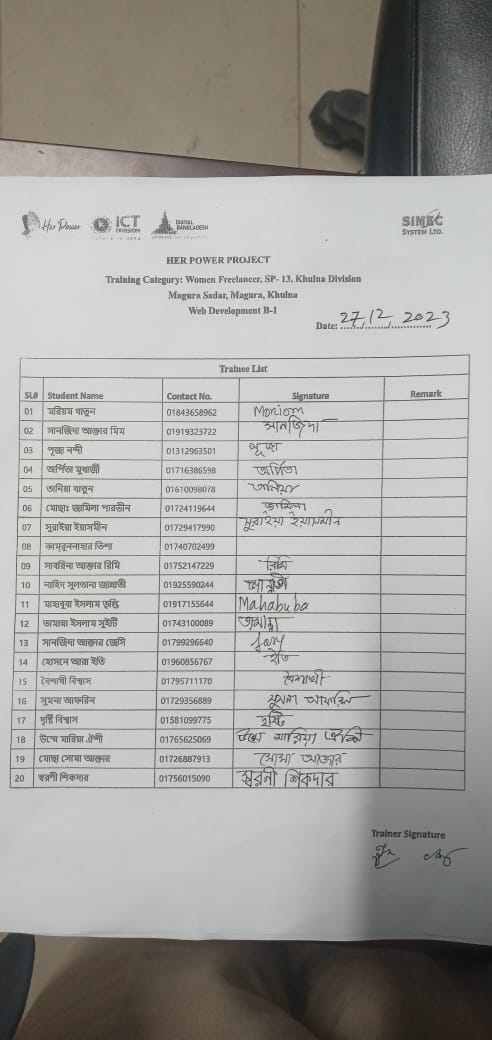 Her Power
ICT
DIVISION
DIGITAL
BANGLADESH
SIMEC
SYSTEM LTD.
HER POWER PROJECT
Training Category: Women Freelancer, SP- 13, Khulna Division
Magura Sadar, Magura, Khulna
Web Development B-1
Date: 27/12/2023
Trainee List
SL# Student Name Contact No. Signature Remark
01 মরিয়ম খাতুন 01843658962 Moriom
02 সানজিদা আক্তার মিম 01919323722 সানজিদা
03 পূজা নন্দী 01312963501 পূজা
04 অর্পিতা মুখার্জী 01716386598 অর্পিতা
05 তানিয়া খাতুন 01610098078 তানিয়া
06 মোছাঃ জামিলা পারভীন 01724119644 জামিলা
07 সুরাইয়া ইয়াসমীন 01729417990 সুরাইয়া ইয়াসমীন
08 কামরুননাহার তিশা 01740702499
09 সাবরিনা আক্তার রিমি 01752147229 রিমি
10 নাহিদ সুলতানা জান্নাতী 01925590244 জান্নাতী
11 মাহাবুবা ইসলাম তৃপ্তি 01917155644 Mahabuba
12 তামান্না ইসলাম সুইটি 01743100089 তামান্না
13 সানজিদা আক্তার জেসি 01799296640
14 হোসনে আরা ইতি 01960856767 ইতি
15 বৈশাখী বিশ্বাস 01795711170 বৈশাখী
16 সুমনা আফরিন 01729356889 সুমনা আফরিন
17 দৃষ্টি বিশ্বাস 01581099775 দৃষ্টি
18 উম্মে মারিয়া ঐশী 01765625069 উম্মে মারিয়া ঐশী
19 মোছা সোমা আক্তার 01726887913 সোমা আক্তার
20 স্বরণী শিকদার 01756015090 স্বরনী শিকদার
Trainer Signature